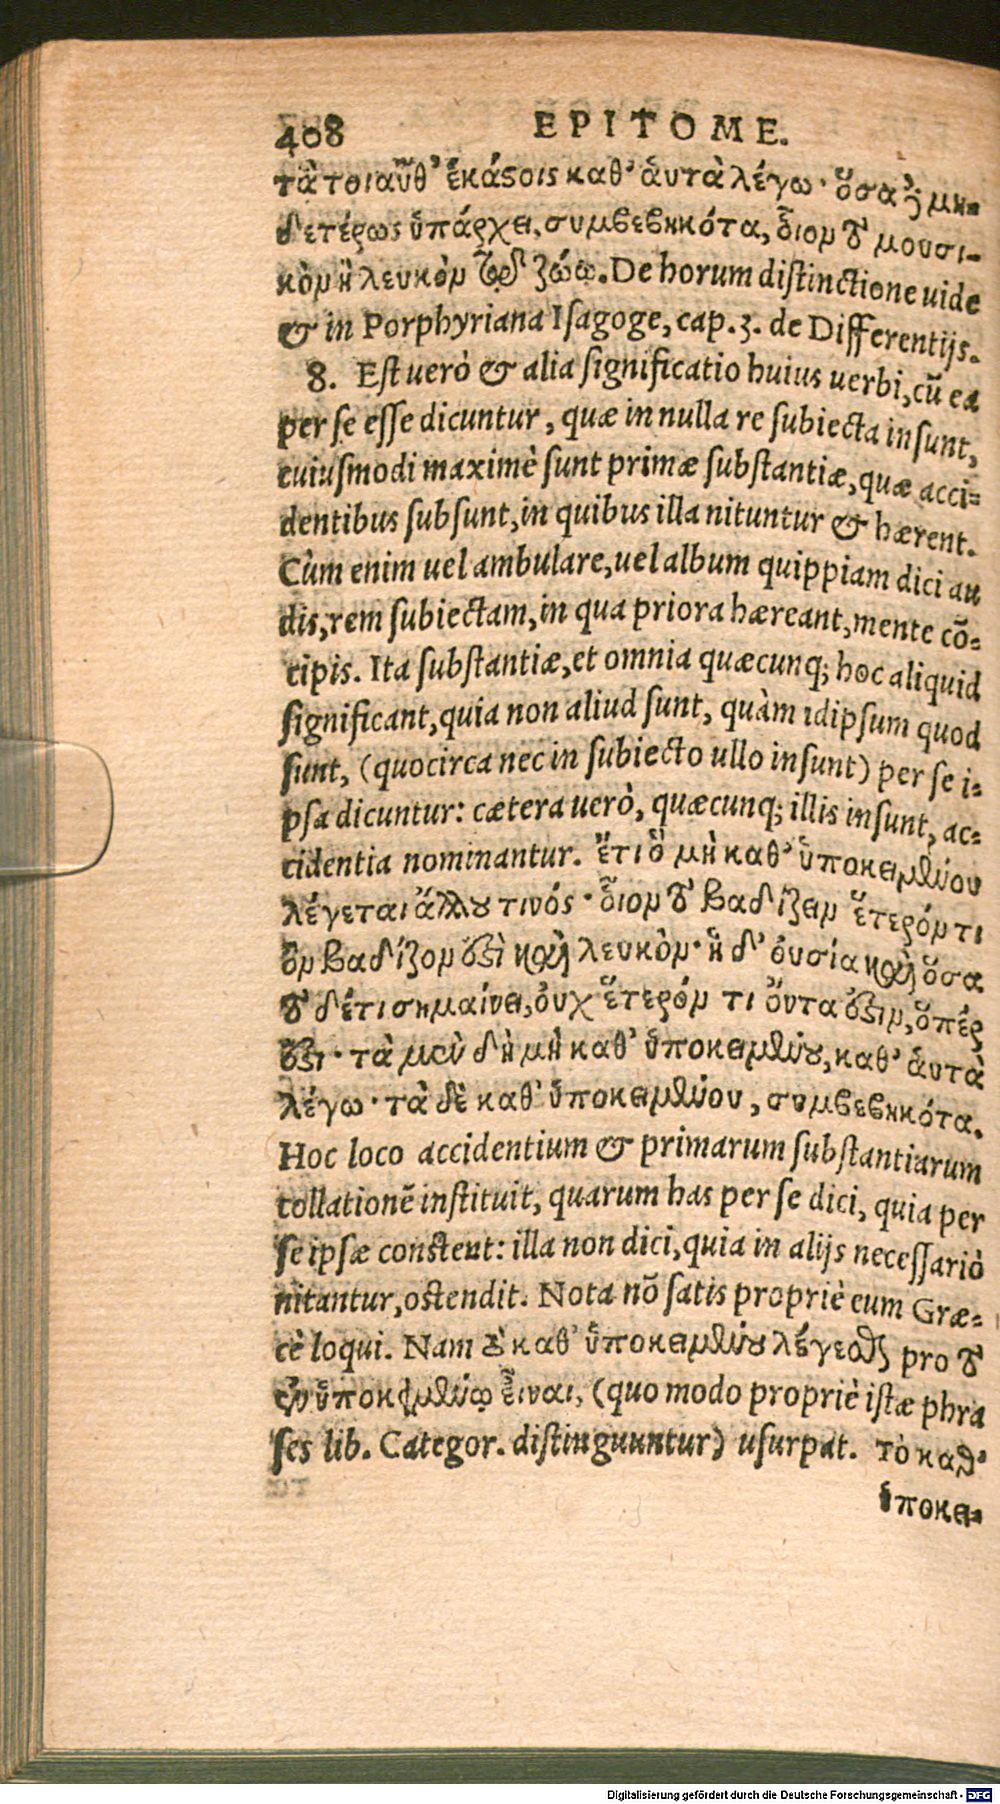 408 EPITOME.
τὰ τοιαῦθ' ἑκάστοις καθ' αὑτὰ λέγω· ὅσα δὲ μη-
δετέρως ὑπάρχει, συμβεβηκότα, οἷον τὸ μουσι-
κὸν ἢ λευκὸν τῷ ζώῳ. De horum distinctione uide
& in Porphyriana Isagoge, cap. 3. de Differentijs.
8. Est uerò & alia significatio huius uerbi, cũ ea
per se esse dicuntur, quæ in nulla re subiecta insunt,
cuiusmodi maximè sunt primæ substantiæ, quæ acci-
dentibus subsunt, in quibus illa nituntur & hærent.
Cùm enim uel ambulare, uel album quippiam dici au
dis, rem subiectam, in qua priora hæreant, mente cō-
cipis. Ita substantiæ, et omnia quæcunq; hoc aliquid
significant, quia non aliud sunt, quàm idipsum quod
sunt, (quocirca nec in subiecto ullo insunt) per se i-
psa dicuntur: cætera uerò, quæcunq; illis insunt, ac-
cidentia nominantur. ἔτι ὃ μὴ καθ' ὑποκειμένου
λέγεται ἄλλου τινός· οἷον τὸ βαδίζειν ἕτερόν τι
ὂν βαδίζον ἐστὶ καὶ λευκὸν· ἡ δ' οὐσία καὶ ὅσα
τὸ δέ τι σημαίνει, οὐχ ἕτερόν τι ὄντα ἐστὶν, ὅπερ
ἐστι· τὰ μὲν δὴ μὴ καθ' ὑποκειμένου, καθ' αὑτὰ
λέγω· τὰ δὲ καθ' ὑποκειμένου, συμβεβηκότα.
Hoc loco accidentium & primarum substantiarum
collationē instituit, quarum has per se dici, quia per
se ipsæ constent: illa non dici, quia in alijs necessariò
nitantur, ostendit. Nota nō satis propriè eum Græ-
cè loqui. Nam τὸ καθ' ὑποκειμένου λέγεσθαι pro τὸ
ἐν ὑποκειμένῳ εἶναι, (quo modo propriè istæ phra
ses lib. Categor. distinguuntur) usurpat. τὸ καθ'
ὑποκει-
Digitalisierung gefördert durch die Deutsche Forschungsgemeinschaft - DFG